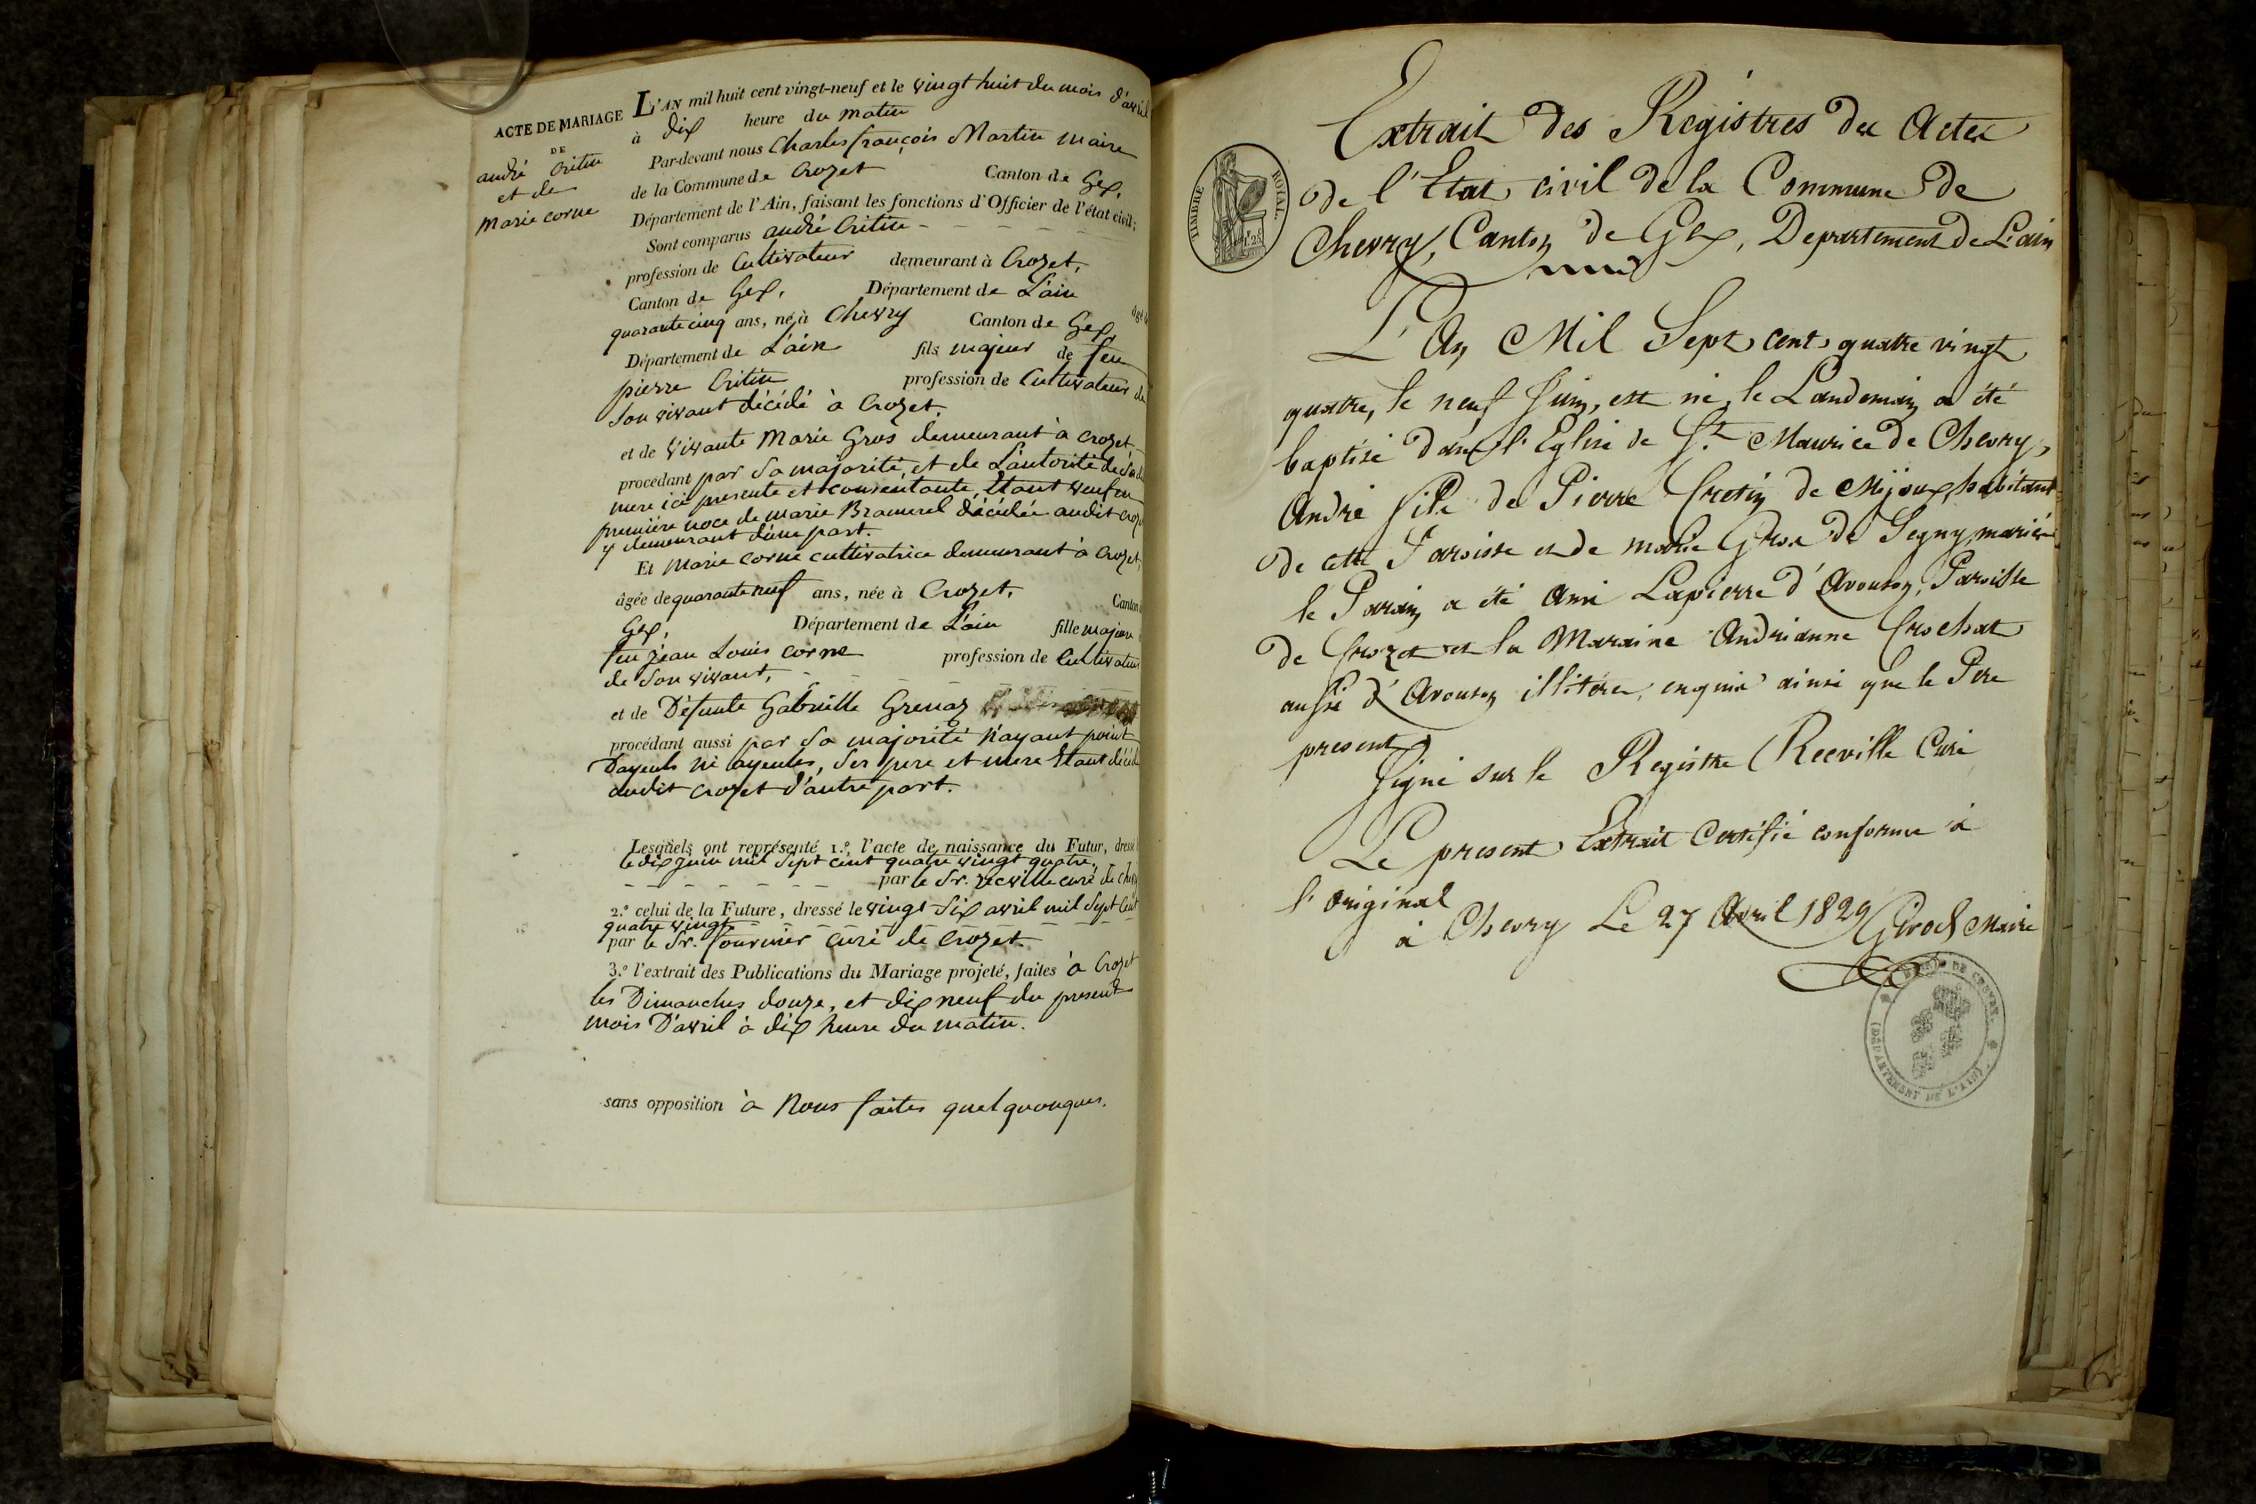 ACTE DE MARIAGE
DE
andré Critin
et de
Marie corne
L'AN mil huit cent vingt-neuf et le vingt huit du mois d'avril
à dix heure du matin
Par-devant nous Charles françois Martin maire
de la Commune de Crozet Canton de Gex,
Département de l'Ain, faisant les fonctions d'Officier de l'état civil;
Sont comparus andré Critin
profession de Cultivateur demeurant à Crozet,
Canton de Gex, Département de L'ain âgé
quarante cinq ans, né à Chevry Canton de Gex
Département de L'ain fils majeur de feu
pierre Critin profession de Cultivateur de
son vivant décédé à Crozet,
et de vivante Marie Gros demeurant à Crozet
procédant par sa majorité, et de L'autorité de sa
mere ici presente et consentante, Etant veuf en
première noce de marie Bramerel décédée audit Crozet
y demeurant d'une part.
Et Marie corne cultivatrice demeurant à Crozet,
âgée de quarante neuf ans, née à Crozet, Canton
Gex, Département de L'ain fille majeur
feu jean Louis corne profession de Cultivateur
de son vivant,
et de Défunte Gabrielle Grenaz
procédant aussi par sa majorité N'ayant point
D'ayeuls ni ayeules, ses pere et mere Etant décédé
audit Crozet d'autre part.
Lesquels ont représenté 1.º l'acte de naissance du Futur, dressé
le dix juin mil sept cent quatre vingt quatre,
par le Sr. recville curé de chevry
2.º celui de la Future, dressé le vingt six avril mil sept cent
quatre vingt
par le Sr. fournier curé de Crozet.
3.º l'extrait des Publications du Mariage projeté, faites à Crozet
les Dimanches douze, et dix neuf du present
mois D'avril à dix heure du matin.
sans opposition à Nous faites quelquonques.
TIMBRE ROYAL.
Extrait des Régistres des Actes
de l'Etat civil de la Commune de
Chevry, Canton de Gex, Departement de L'ain
L'An Mil Sept cent quatre vingt
quatre, le neuf Juin, est né, le Landemain a été
baptisé dans l'Eglise de St. Maurice de Chevry,
André fils de Pierre Cretin de Mijoux, habitant
de cette Paroisse et de marie Gros de Segny mariés
le Parain a été Ami Lapierre d'Avouson, Paroisse
de Crozet et la Maraine Andrianne Crochat
aussi d'Avouson illitérés, enquis ainsi que le Pere
present
Signé sur le Registre Recville Curé
Le present Extrait Certifié conforme à
l'original
à Chevry Le 27 Avril 1829 Girod Maire
MAIRIE DE CHEVRY
(DÉPARTEMENT DE L'AIN)